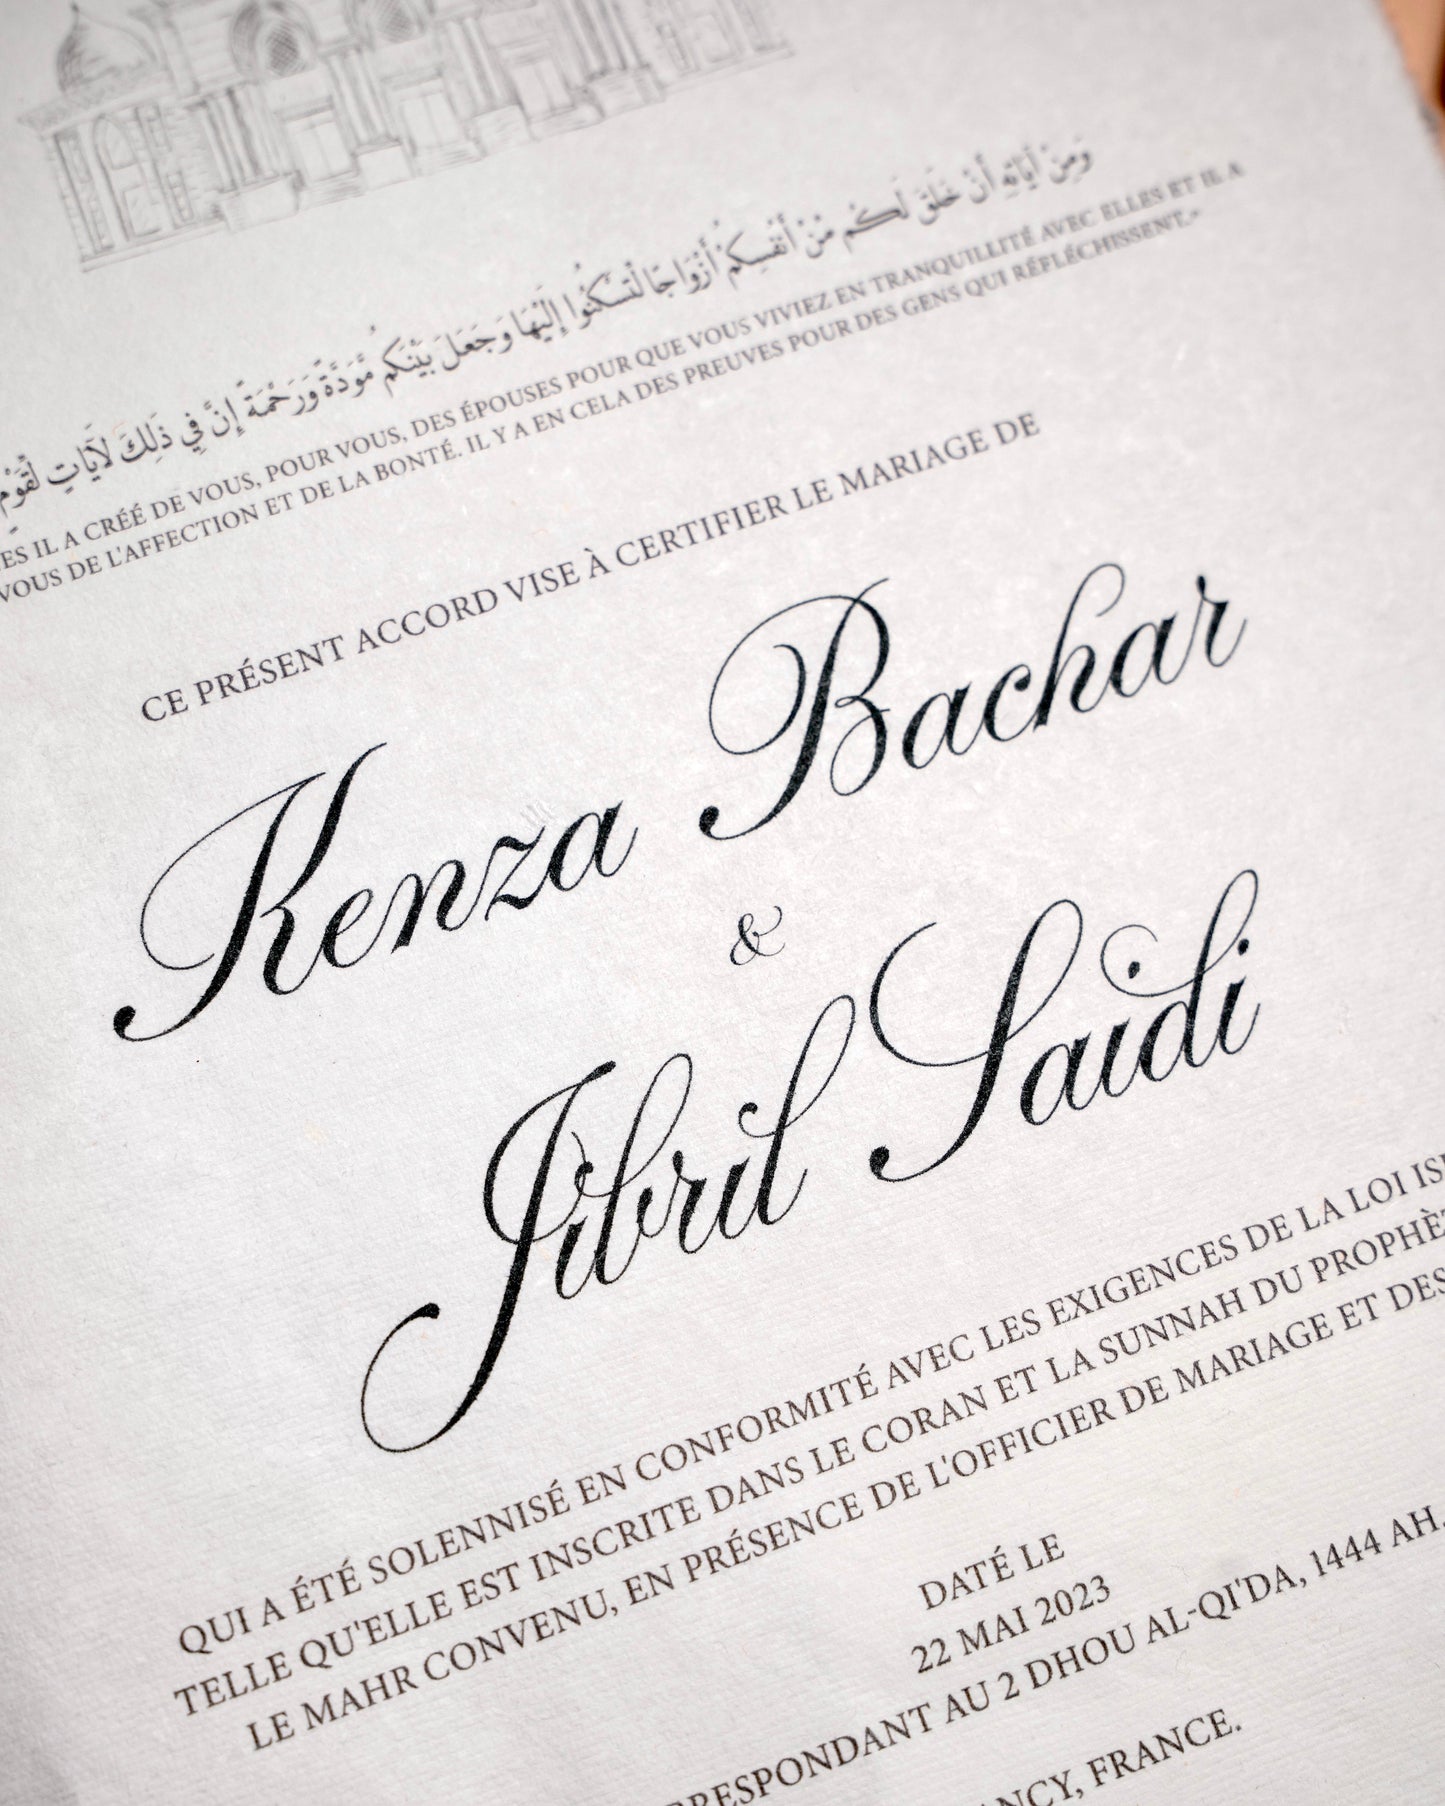 وَمِنْ آيَاتِهِ أَنْ خَلَقَ لَكُم مِّنْ أَنفُسِكُمْ أَزْوَاجًا لِّتَسْكُنُوا إِلَيْهَا وَجَعَلَ بَيْنَكُم مَّوَدَّةً وَرَحْمَةً إِنَّ فِي ذَلِكَ لَآيَاتٍ لِّقَوْمٍ
ES IL A CRÉÉ DE VOUS, POUR VOUS, DES ÉPOUSES POUR QUE VOUS VIVIEZ EN TRANQUILLITÉ AVEC ELLES ET IL A
VOUS DE L'AFFECTION ET DE LA BONTÉ. IL Y A EN CELA DES PREUVES POUR DES GENS QUI RÉFLÉCHISSENT.»
CE PRÉSENT ACCORD VISE À CERTIFIER LE MARIAGE DE
Kenza Bachar
&
Jibril Saidi
QUI A ÉTÉ SOLENNISÉ EN CONFORMITÉ AVEC LES EXIGENCES DE LA LOI IS
TELLE QU'ELLE EST INSCRITE DANS LE CORAN ET LA SUNNAH DU PROPHÈ
LE MAHR CONVENU, EN PRÉSENCE DE L'OFFICIER DE MARIAGE ET DES
DATÉ LE
22 MAI 2023
RESPONDANT AU 2 DHOU AL-QI'DA, 1444 AH.
ANCY, FRANCE.